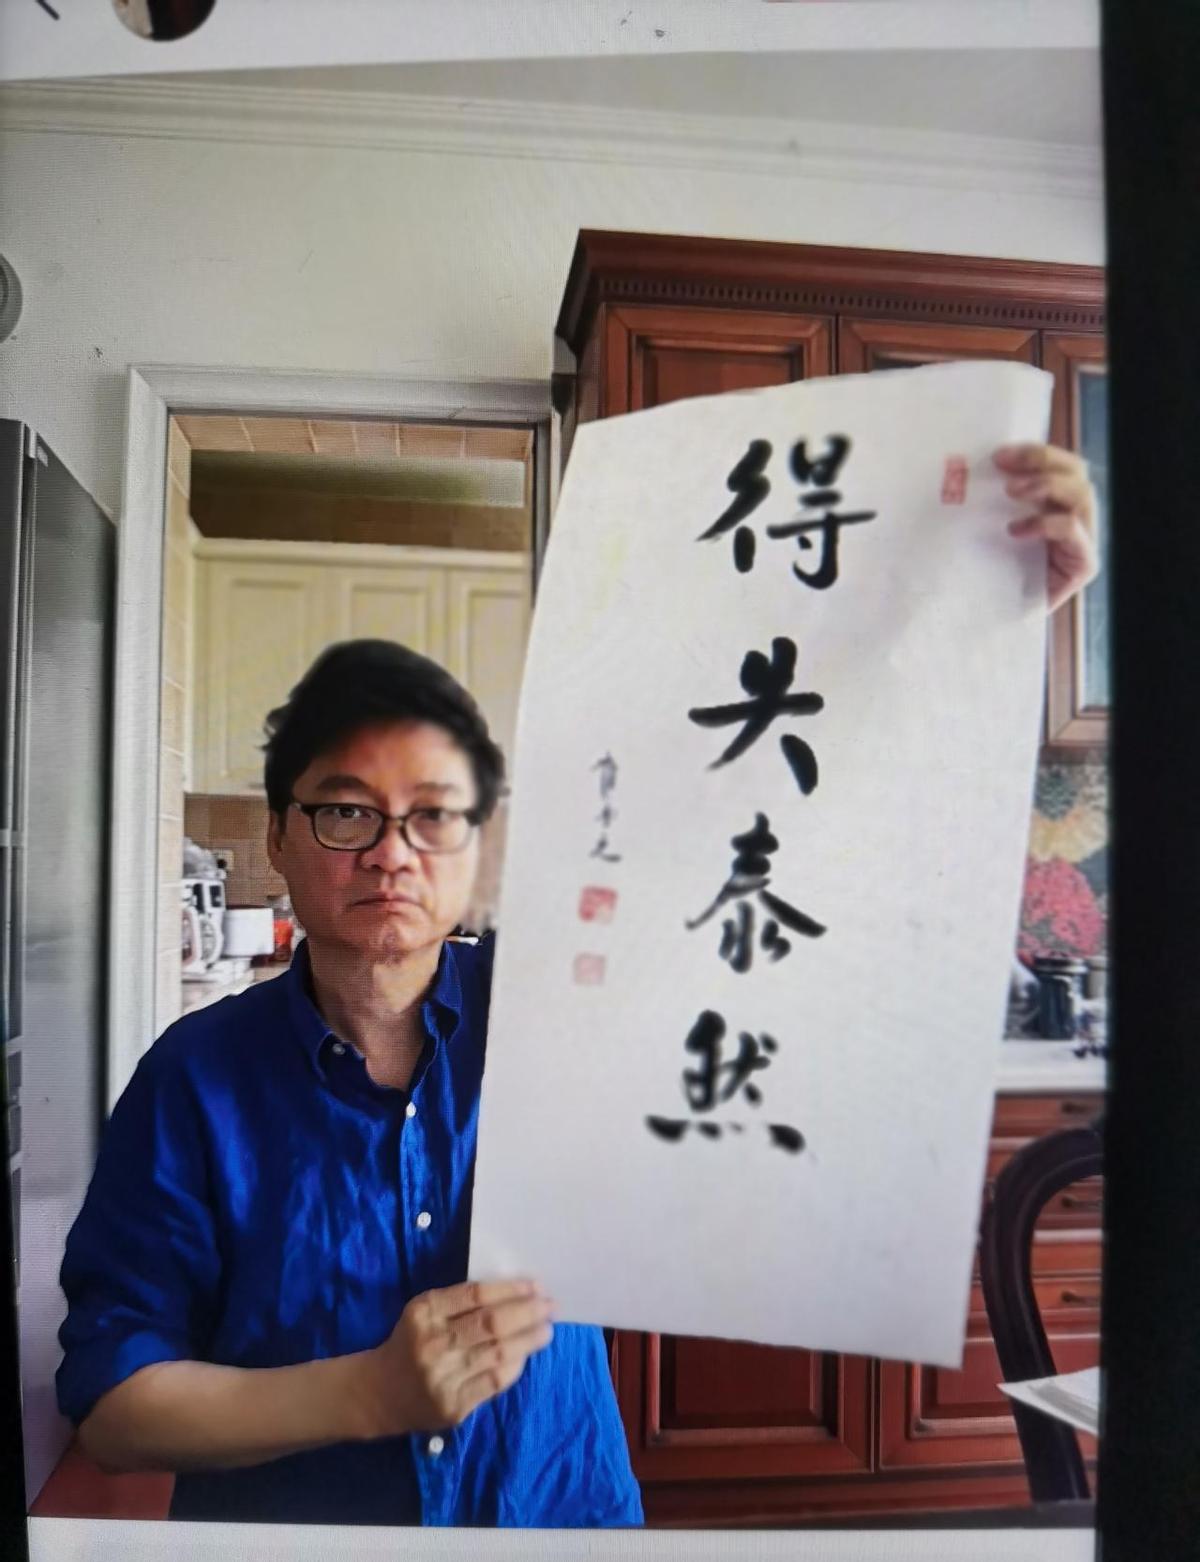 得失泰然